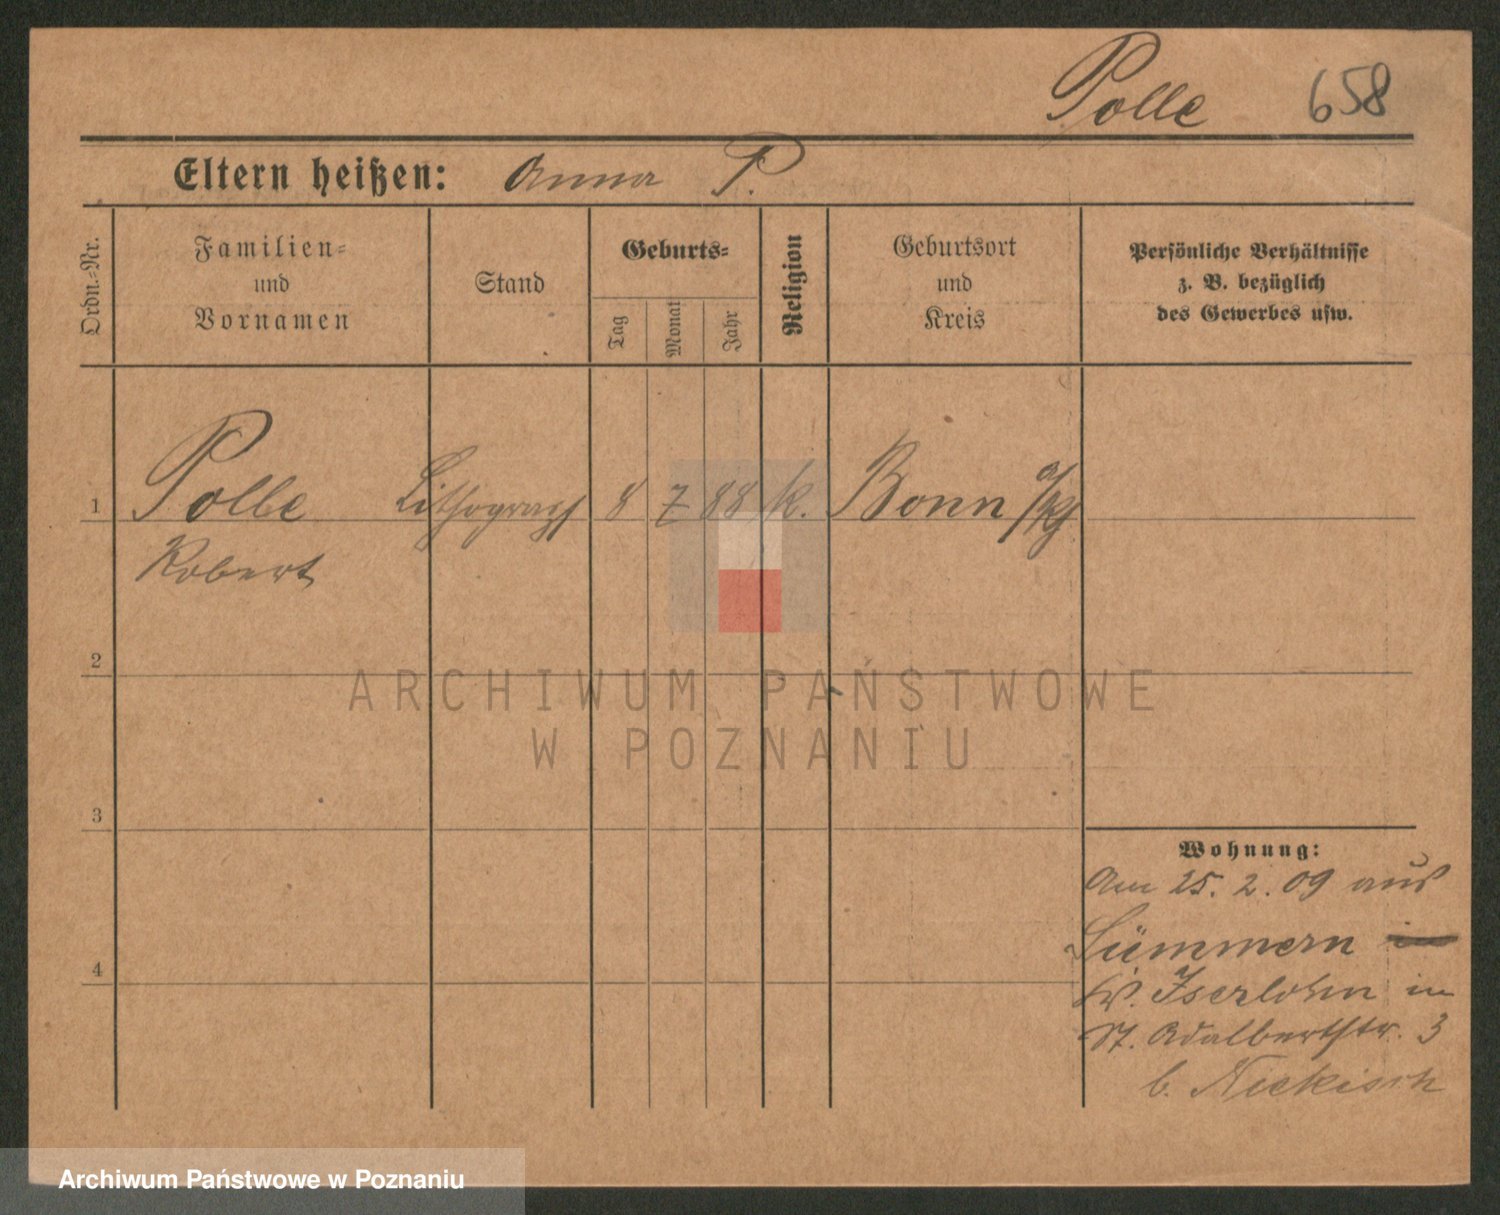 Polle 658
Eltern heißen: Anna P.
Ordn.-Nr.
Familien-
und
Vornamen
Stand
Geburts-
Tag
Monat
Jahr
Religion
Geburtsort
und
Kreis
Persönliche Verhältnisse
z. B. bezüglich
des Gewerbes usw.
1 Polle Lithograph 8 7 88 k. Bonn a/Rh
Robert
2
3
4
Wohnung:
Am 25. 2. 09 aus
Sümmern in
Kr. Iserlohn in
St. Adalbertstr. 3
b. Nickisch
ARCHIWUM PAŃSTWOWE
W POZNANIU
Archiwum Państwowe w Poznaniu